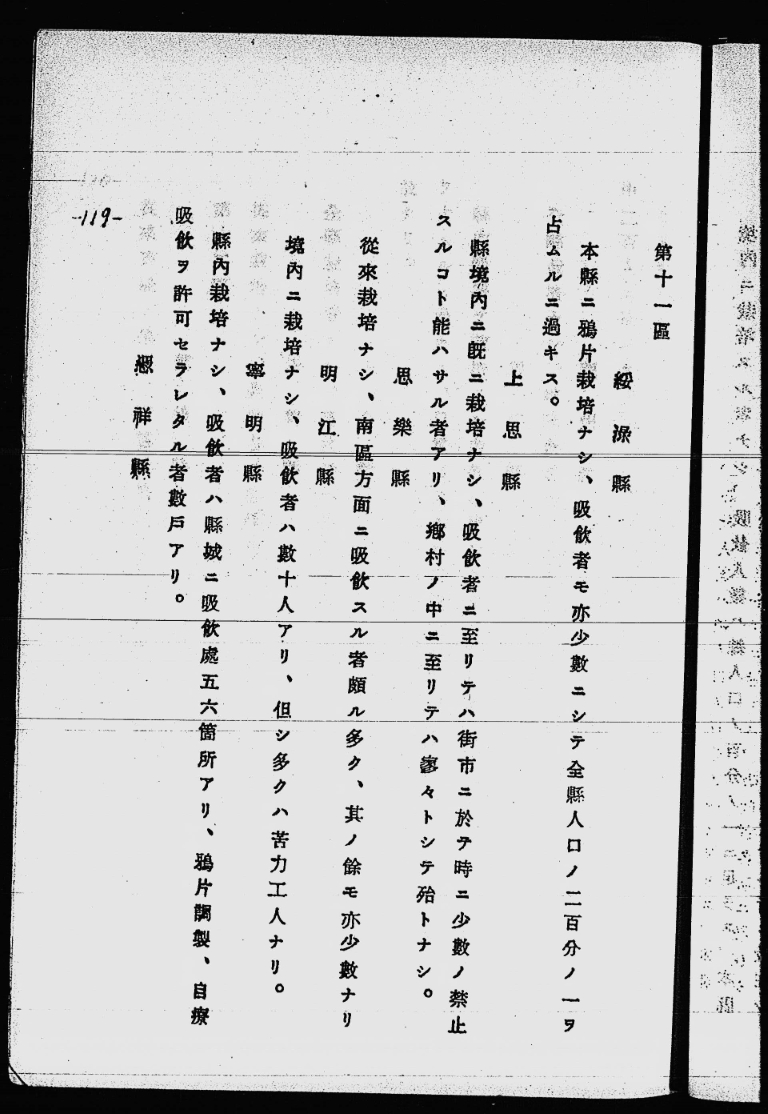 第十一區
綏淥縣
本縣ニ鴉片栽培ナシ、吸飮者モ亦少數ニシテ全縣人口ノ二百分ノ一ヲ
占ムルニ過キス。
上思縣
縣境內ニ旣ニ栽培ナシ、吸飮者ニ至リテハ街市ニ於テ時ニ少數ノ禁止
スルコト能ハサル者アリ、鄕村ノ中ニ至リテハ寥々トシテ殆トナシ。
思樂縣
從來栽培ナシ、南區方面ニ吸飮スル者頗ル多ク、其ノ餘モ亦少數ナリ
明江縣
境內ニ栽培ナシ、吸飮者ハ數十人アリ、但シ多クハ苦力工人ナリ。
寧明縣
縣內栽培ナシ、吸飮者ハ縣城ニ吸飮處五六箇所アリ、鴉片調製、自療
吸飮ヲ許可セラレタル者數戶アリ。
憑祥縣
-119-